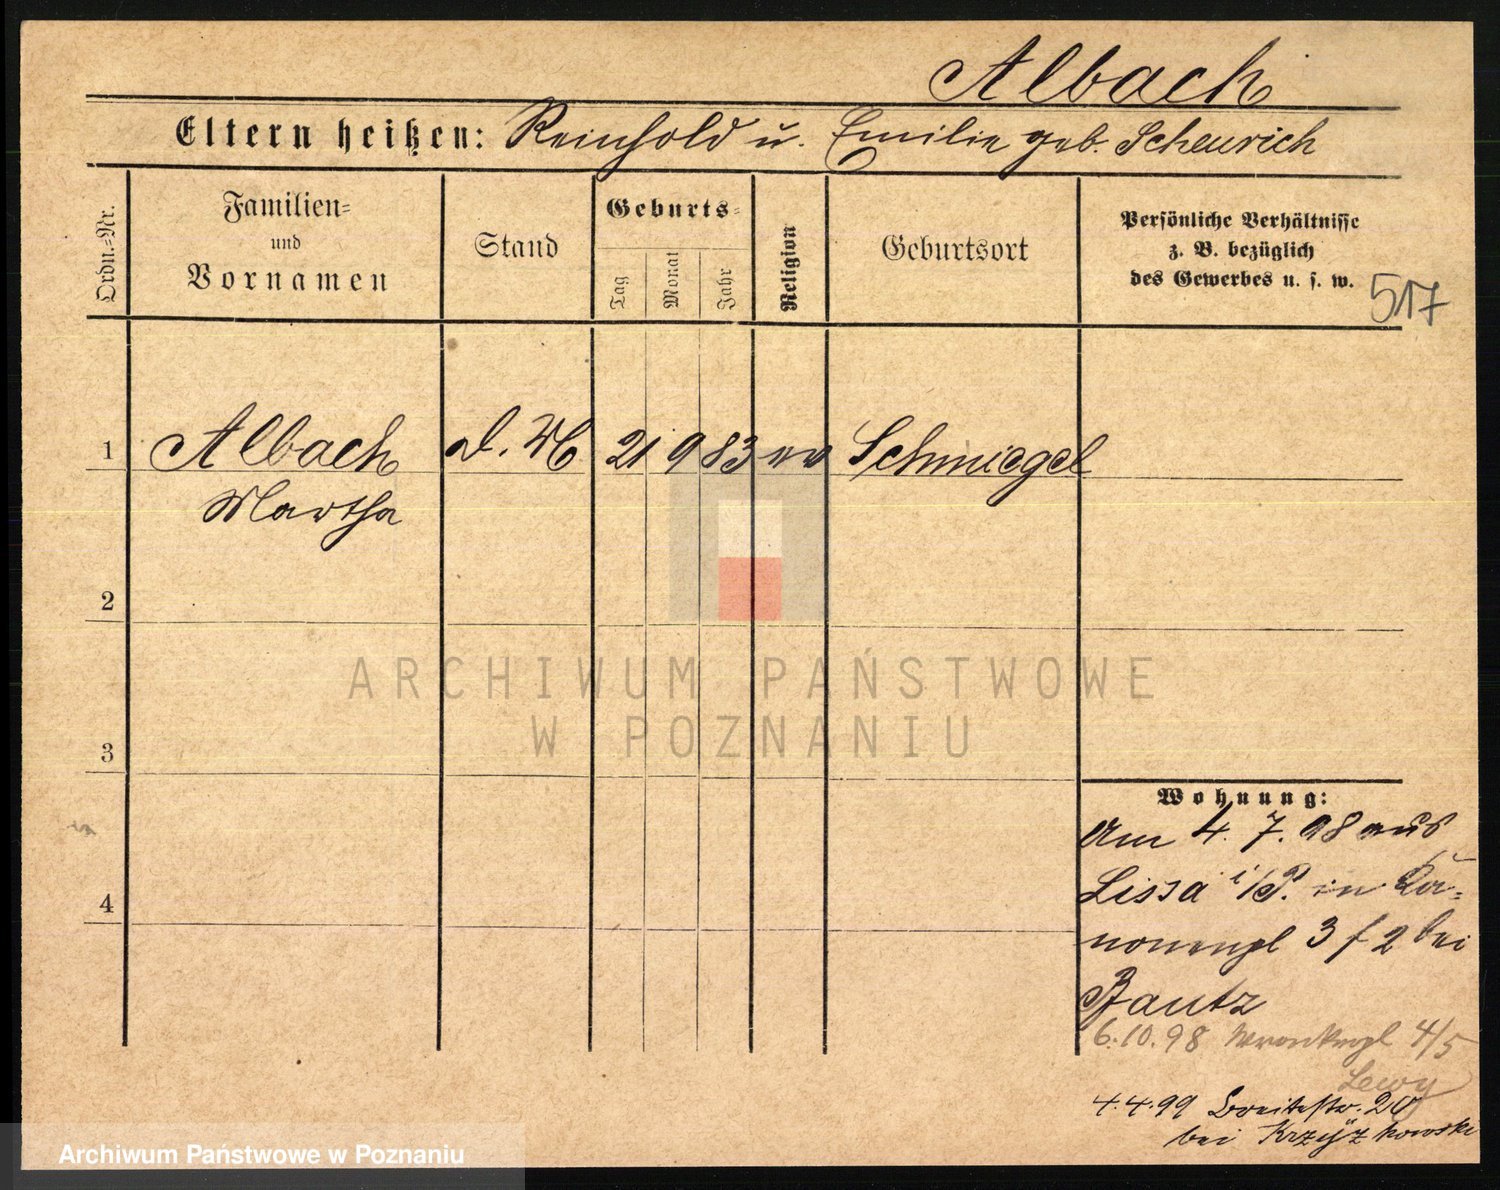 Albach
Eltern heißen: Reinhold u. Emilie geb. Scheurich
Ordn.=Nr.
Familien=
und
Vornamen
Stand
Geburts=
Tag
Monat
Jahr
Religion
Geburtsort
Persönliche Verhältnisse
z. B. bezüglich
des Gewerbes u. s. w.
517
1 Albach D. M 21 9 83 ev Schmiegel
Martha
2
3
4
Wohnung:
Am 4. 7. 98 aus
Lissa i/P. in Ka=
nonenpl 3 f 2 bei
Bautz
6.10.98 Wronkerpl 4/5
Lewy
4.4.99 Breitestr. 20
bei Krzyżkowski
ARCHIWUM PAŃSTWOWE
W POZNANIU
Archiwum Państwowe w Poznaniu